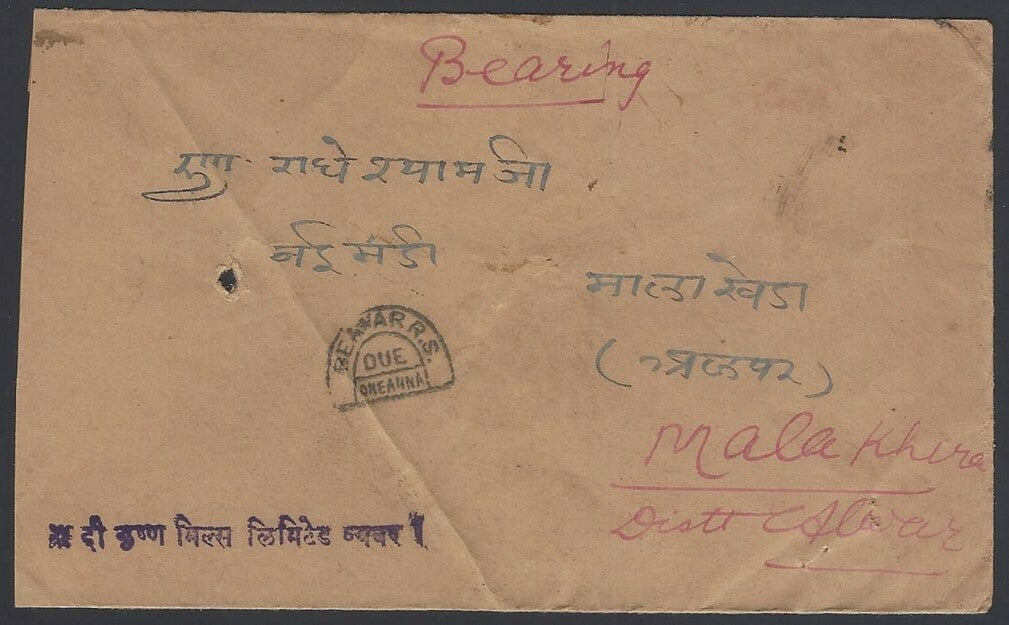 Bearing
राधेश्यामजी
नई मंडी
मालाखेडा
BEAWAR R.S.
DUE
ONE ANNA
Mala Khera
Distt Alwar
दी कृष्ण मिल्स लिमिटेड ब्यावर